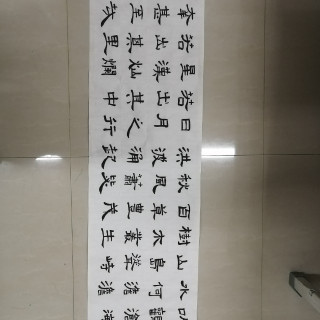 以觀滄海
水何澹澹
山島竦峙
樹木叢生
百草豐茂
秋風蕭瑟
洪波涌起
日月之行
若出其中
星漢燦爛
若出其里
幸甚至哉